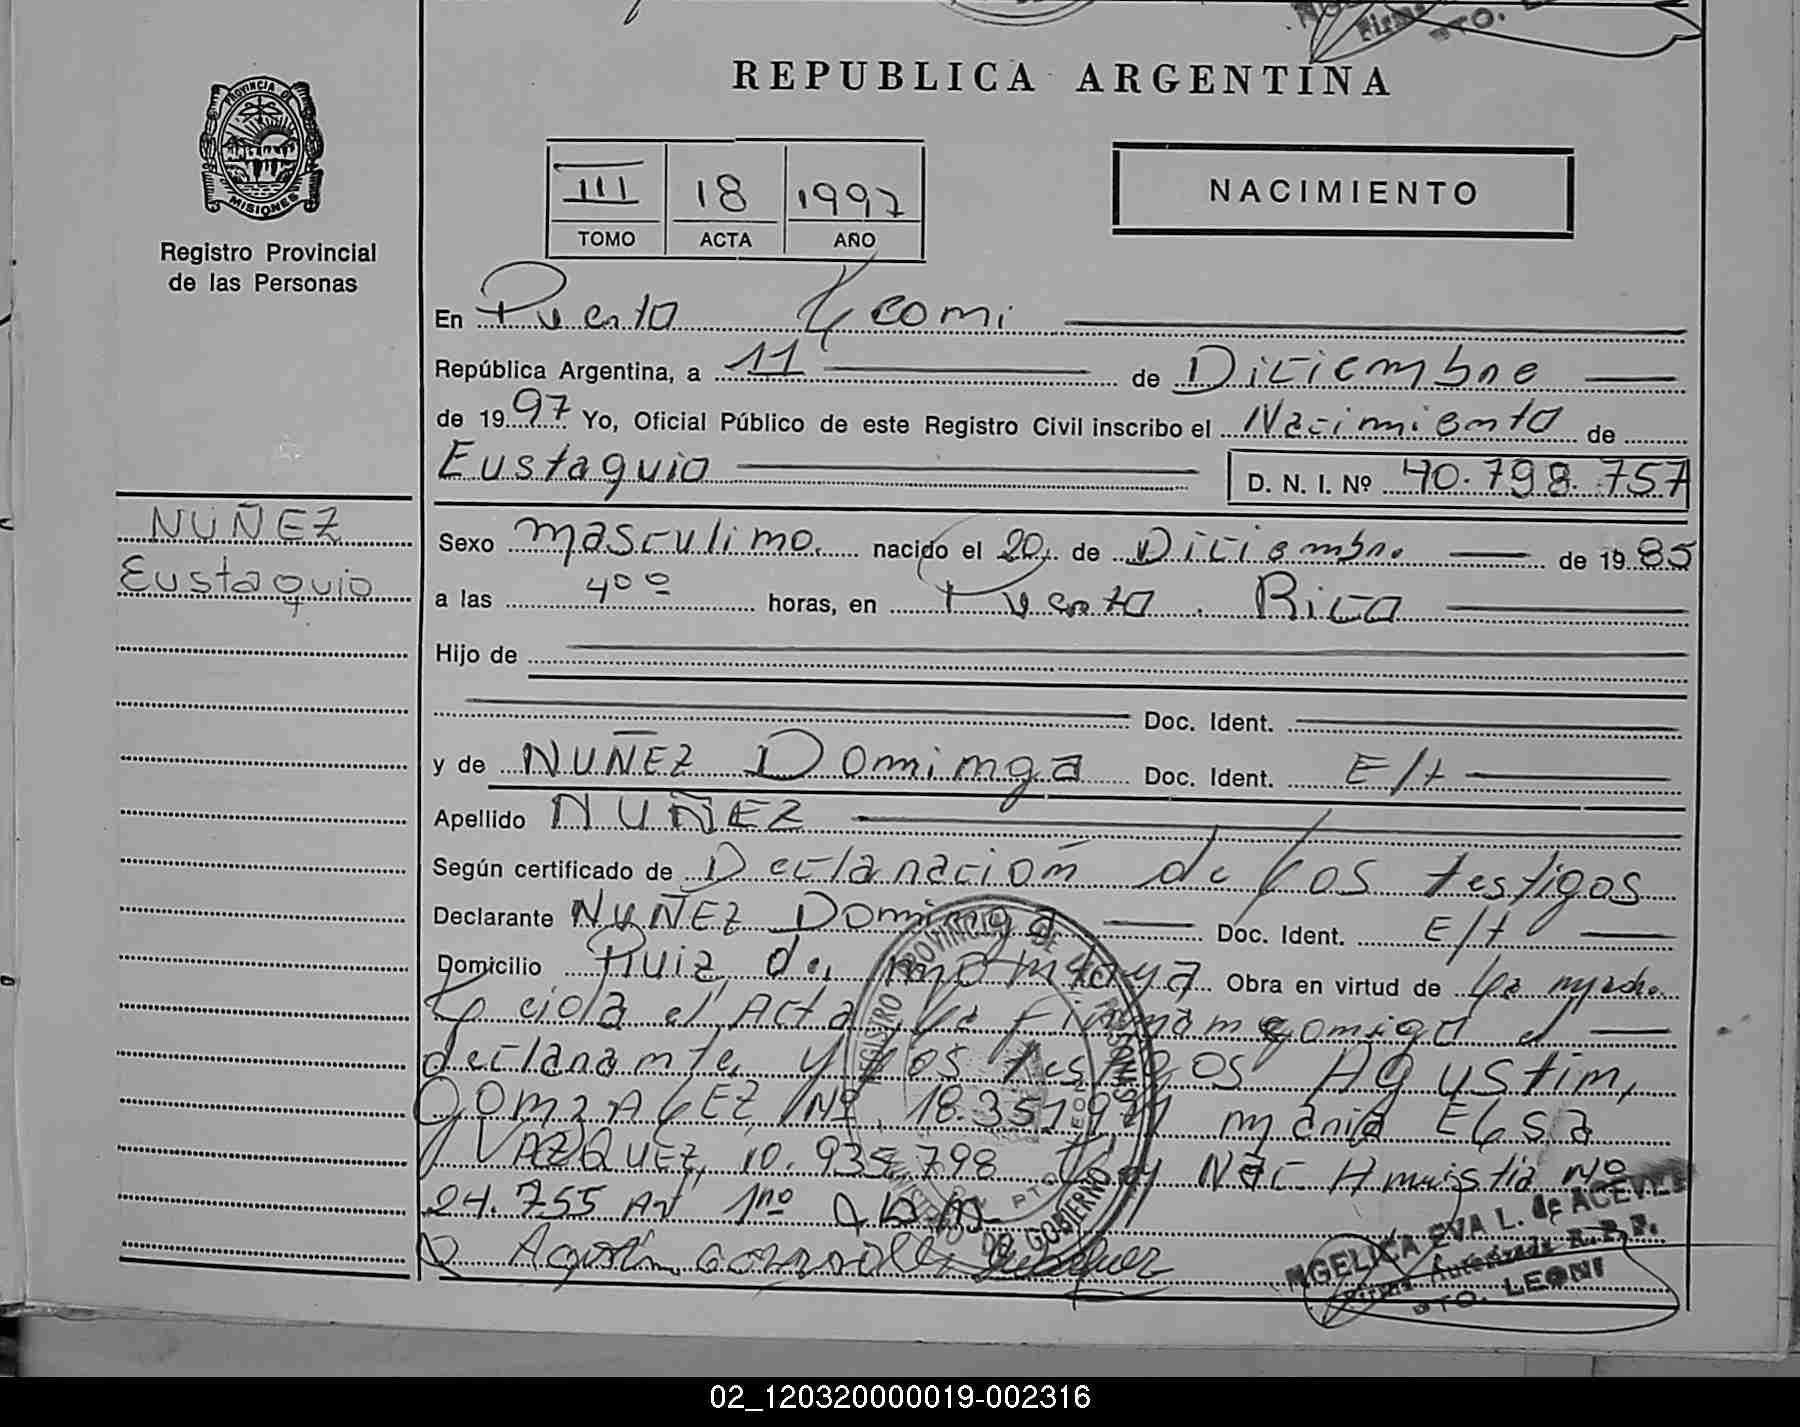 REPUBLICA ARGENTINA
PROVINCIA D
MISIONES
Registro Provincial
de las Personas
III 18 1997
TOMO ACTA AÑO
NACIMIENTO
En Puerto Leoni
República Argentina, a 11 de Diciembre
de 1997 Yo, Oficial Público de este Registro Civil inscribo el Nacimiento de
Eustaquio D. N. I. Nº 40.798.757
NUÑEZ
Eustaquio
Sexo masculino. nacido el 20 de Diciembre de 1985
a las 4⁰⁰ horas, en Puerto Rico
Hijo de
Doc. Ident.
y de NUÑEZ Dominga Doc. Ident. E/t
Apellido NUÑEZ
Según certificado de Declaración de Los testigos
Declarante NUÑEZ Dominga Doc. Ident. E/t
Domicilio Ruiz de montoya Obra en virtud de La madre
Leida el Acta La firman comigo el
declarante y Los testigos AGustin,
GONZALEZ Nº 18.351.991 maria ELSa
VAZQUEZ, 10.935.798 Ley Nac Amnistia Nº
24.755 Art 1ro
Agustin Gonzalez
REGISTRO PROVINCIAL DE
GOBIERNO
ANGELICA EVA L. de ACEVEDO
Firma Autorizada R.P.P.
PTO. LEONI
02_120320000019-002316